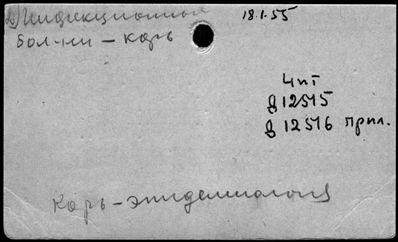 Инфекционные 18.1.55
бол-ни – корь
4 пт
д 12515
д 12516 прил.
Корь – эпидемиология